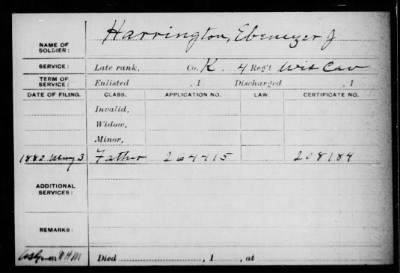 NAME OF SOLDIER: Harrington, Ebenezer J
SERVICE: Late rank, Co. K. 4 Reg't Wis Cav
TERM OF SERVICE: Enlisted , 1 Discharged , 1
DATE OF FILING. CLASS. APPLICATION NO. LAW. CERTIFICATE NO.
Invalid,
Widow,
Minor,
1882 3 Father 264415 208184
ADDITIONAL SERVICES:
REMARKS:
Died , 1 , at